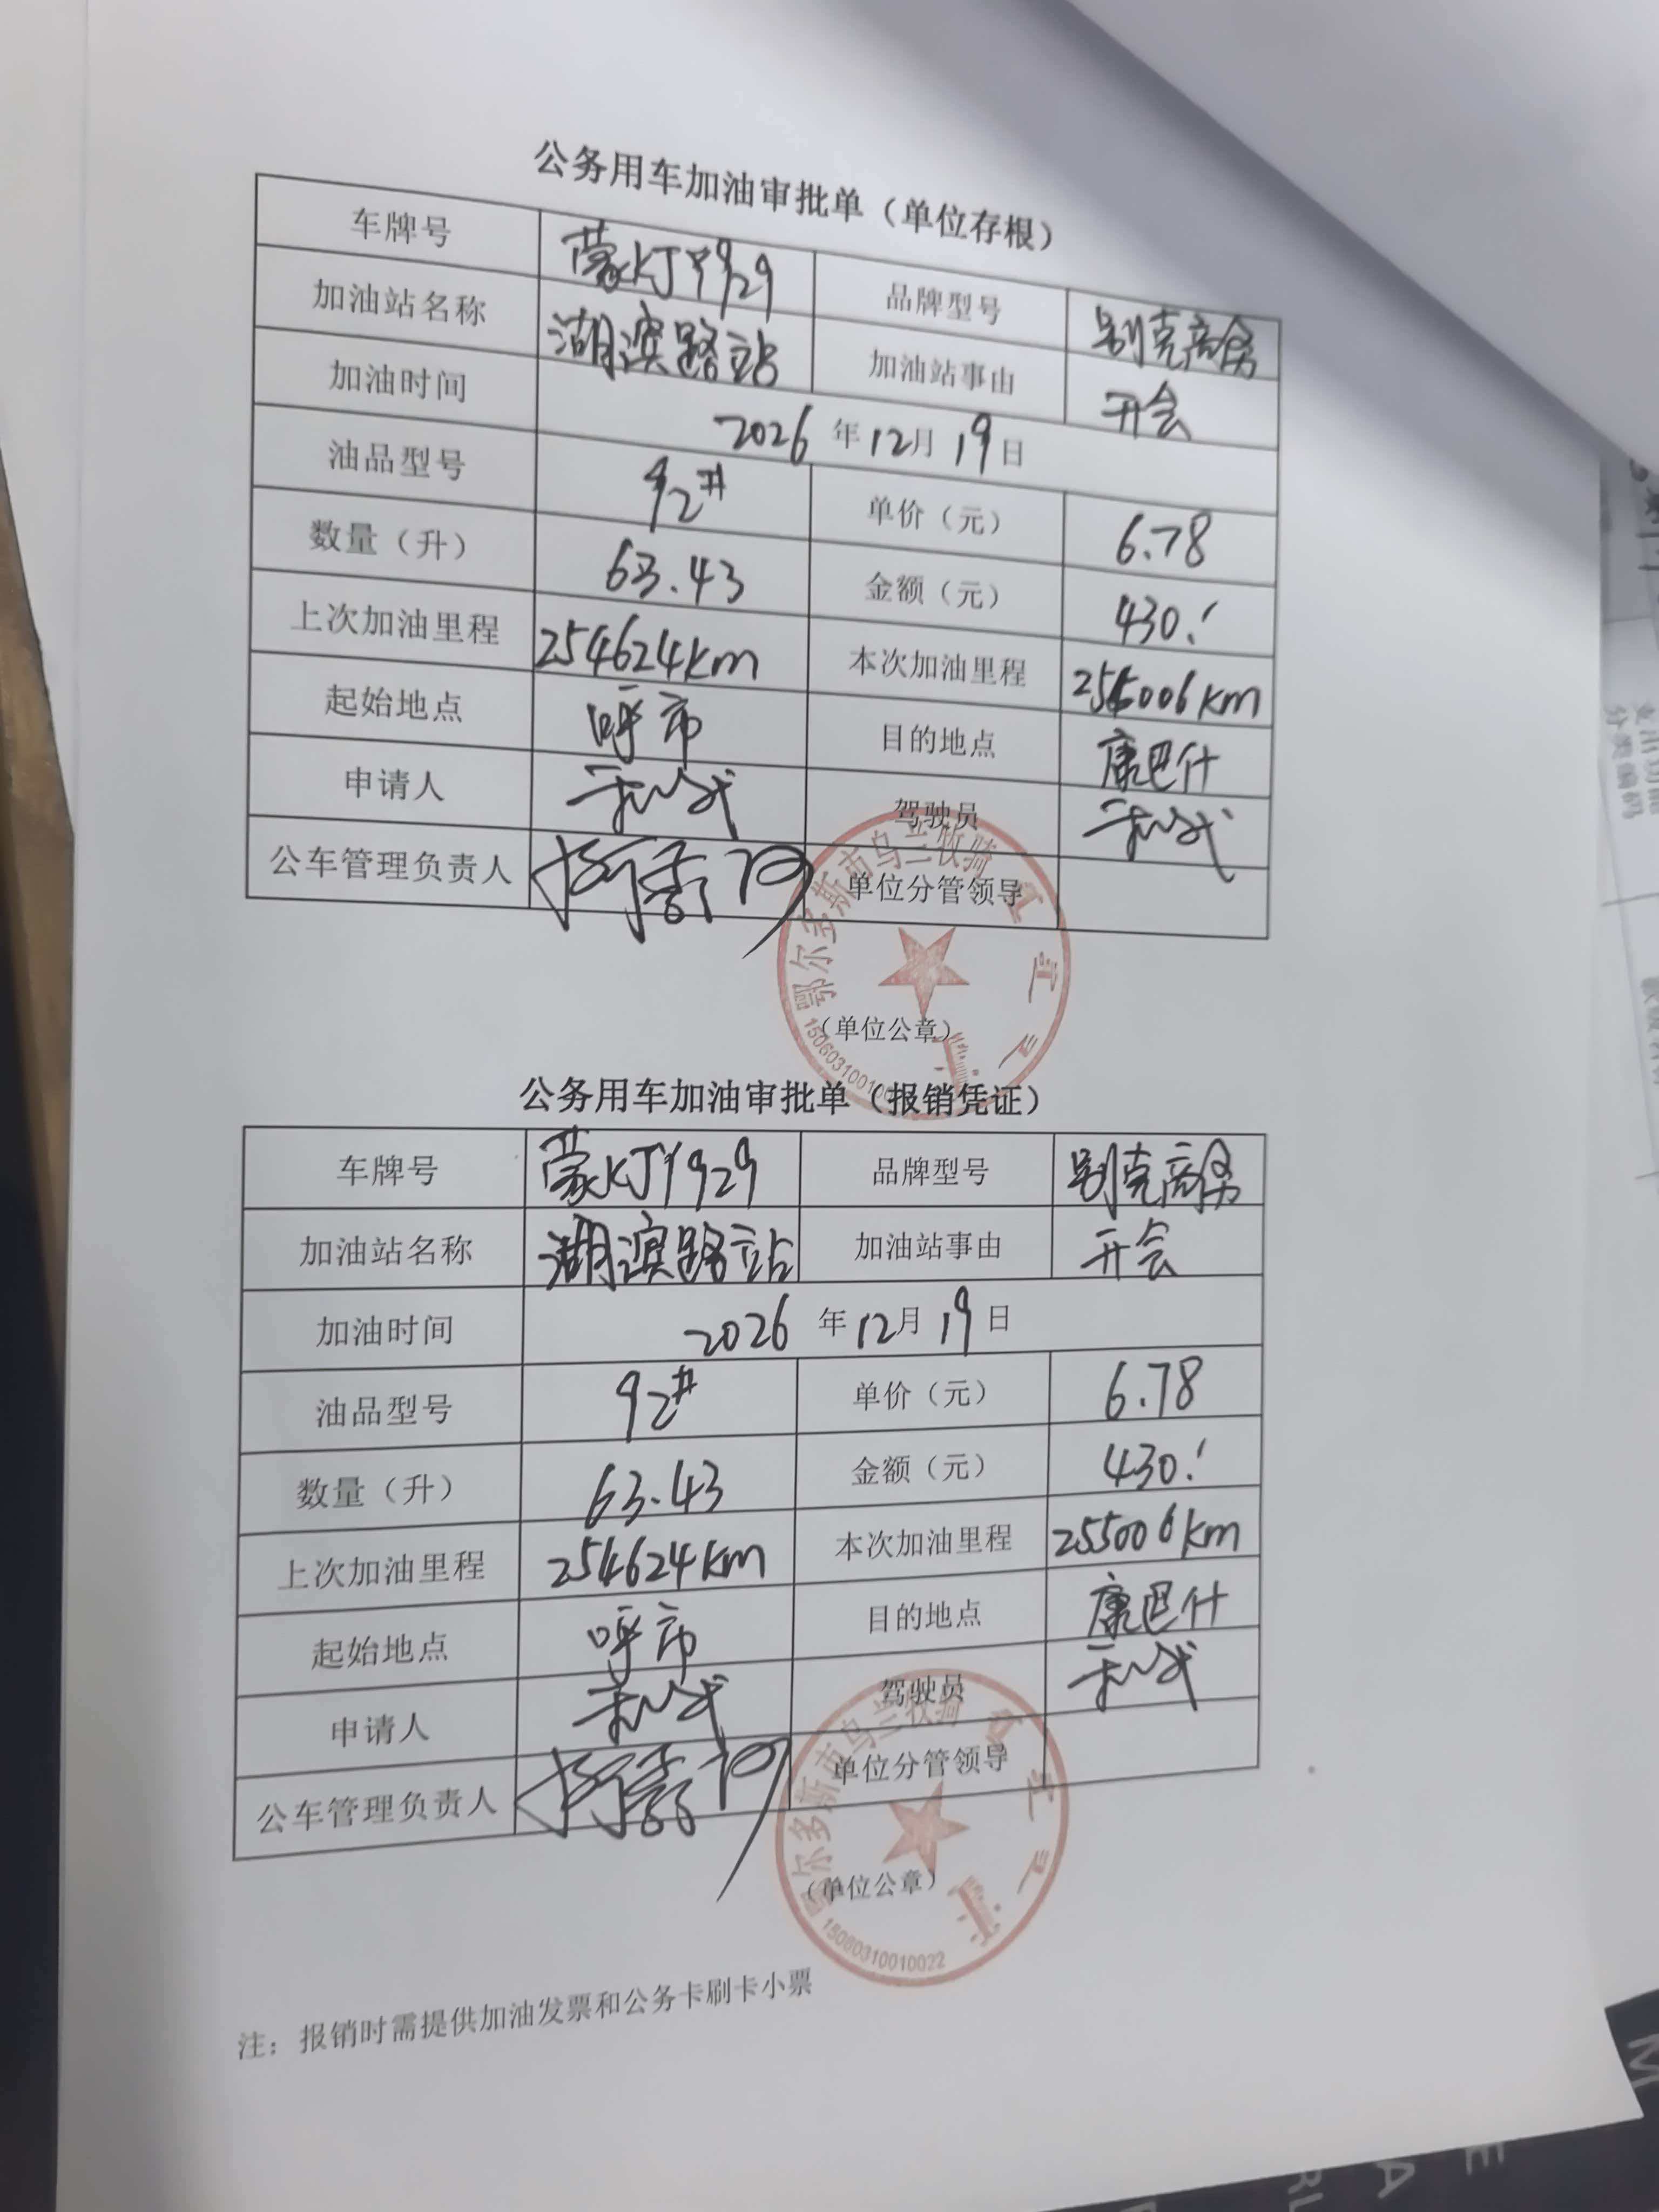 公务用车加油审批单（单位存根）
车牌号 蒙KJY929 品牌型号 别克商务
加油站名称 湖滨路站 加油站事由 开会
加油时间 2026年12月19日
油品型号 92# 单价（元） 6.78
数量（升） 63.43 金额（元） 430.1
上次加油里程 254624km 本次加油里程 255006km
起始地点 呼市 目的地点 康巴什
申请人 驾驶员
公车管理负责人 单位分管领导
鄂尔多斯市乌兰牧骑
（单位公章）
公务用车加油审批单（报销凭证）
车牌号 蒙KJY929 品牌型号 别克商务
加油站名称 湖滨路站 加油站事由 开会
加油时间 2026年12月19日
油品型号 92# 单价（元） 6.78
数量（升） 63.43 金额（元） 430.1
上次加油里程 254624km 本次加油里程 255006km
起始地点 呼市 目的地点 康巴什
申请人 驾驶员
公车管理负责人 单位分管领导
鄂尔多斯市乌兰牧骑
（单位公章）
15060310010022
注：报销时需提供加油发票和公务卡刷卡小票